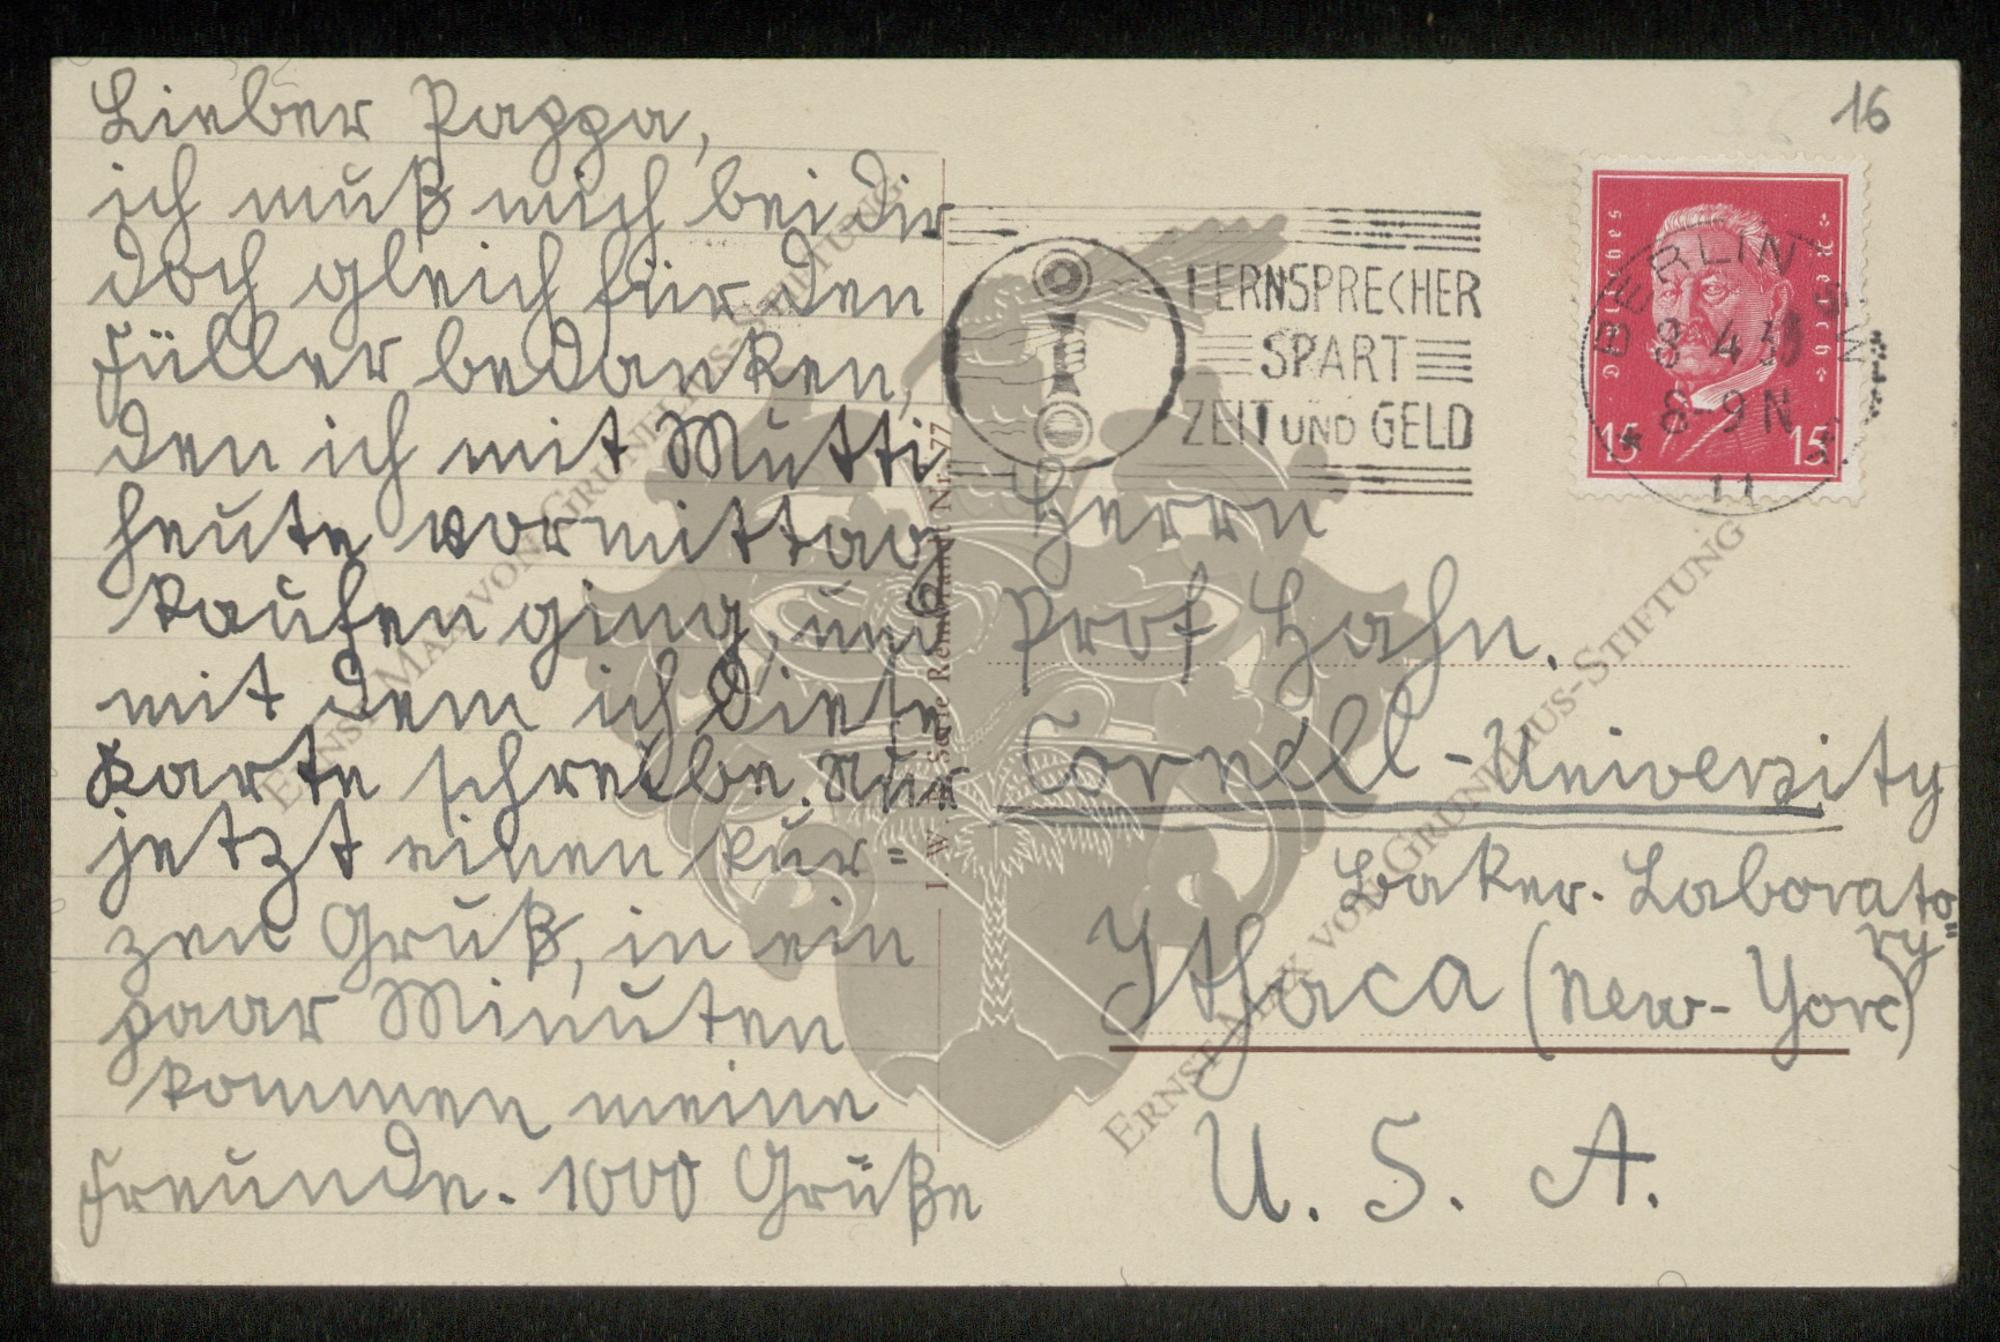 Lieber Pappa,
ich muß mich bei dir
doch gleich für den
Füller bedanken,
den ich mit Mutti
heute vormittag
kaufen ging, und
mit dem ich diese
Karte schreibe. Nur
jetzt einen kur=
zen Gruß, in ein
paar Minuten
kommen meine
Freunde. 1000 Grüße
16
Deutsches Reich
15 15
BERLIN SW
8 4 33
8-9 N
11
FERNSPRECHER
SPART
ZEIT UND GELD
Herrn
Prof Hahn.
Cornell-University
Baker-Laborato=
ry
Ithaca (New-Yorc)
U. S. A.
Serie Rembrandt Nr. 77
ERNST MAX VON GRUNELIUS-STIFTUNG
ERNST MAX VON GRUNELIUS-STIFTUNG